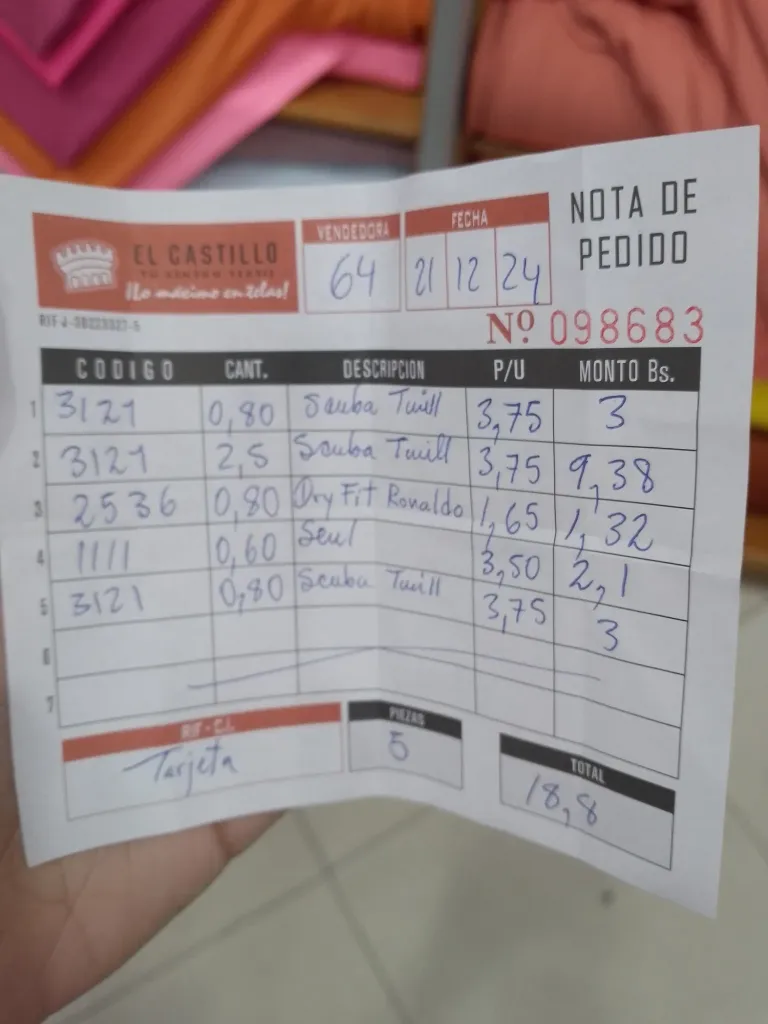 NOTA DE
PEDIDO
EL CASTILLO
¡Lo máximo en telas!
VENDEDORA
64
FECHA
21 12 24
Nº 098683
CODIGO CANT. DESCRIPCION P/U MONTO Bs.
1 3121 0,80 Scuba Twill 3,75 3
2 3121 2,5 Scuba Twill 3,75 9,38
3 2536 0,80 Dry Fit Ronaldo 1,65 1,32
4 1111 0,60 Seul 3,50 2,1
5 3121 0,80 Scuba Twill 3,75 3
6
7
RIF - C.I.
Tarjeta
PIEZAS
5
TOTAL
18,8